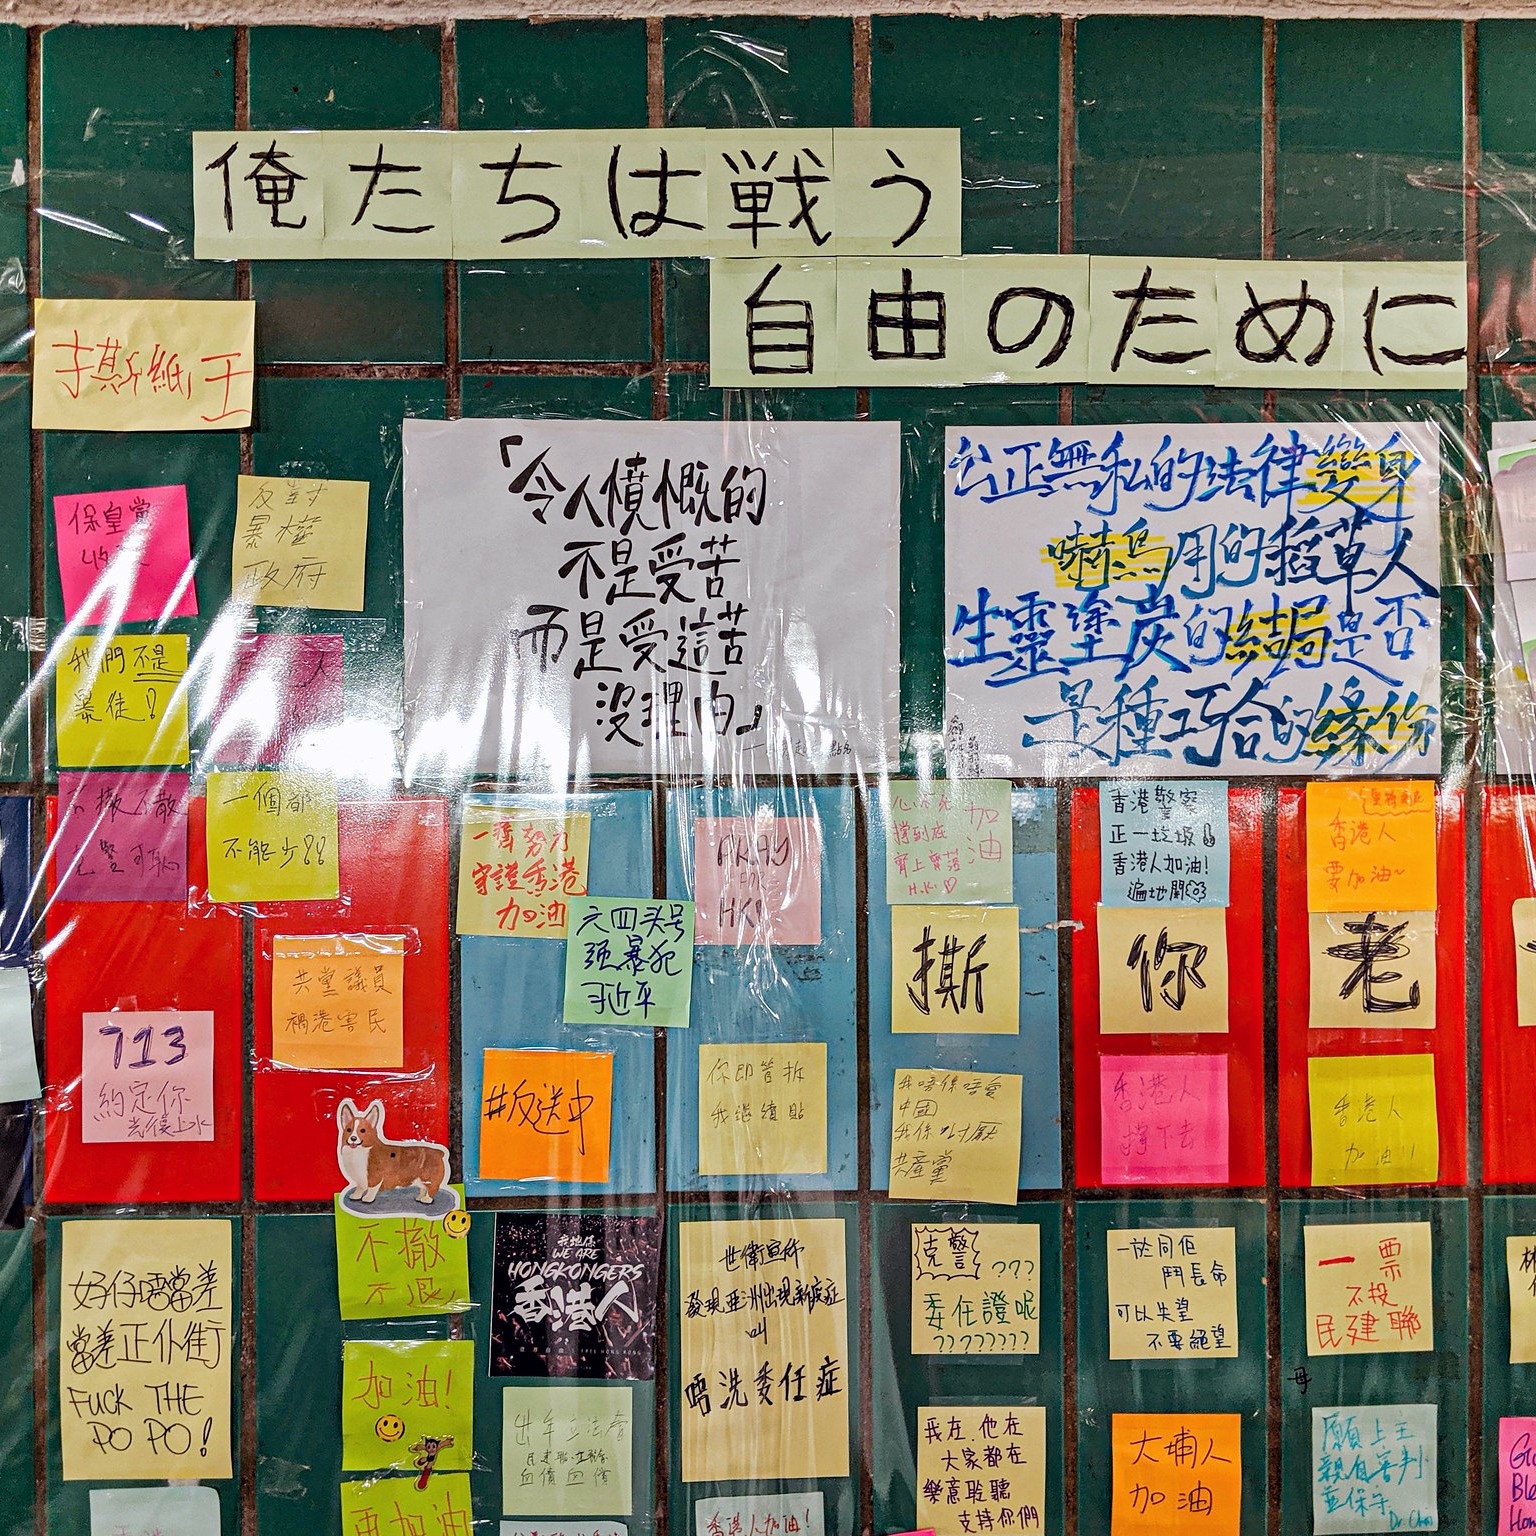 俺たちは戦う
自由のために
撕紙 王
「令人憤慨的
不是受苦
而是受這苦
沒理由」
公正無私的法律變身
嚇鳥用的稻草人
生靈塗炭的結局是否
是種巧合的緣份
保皇黨
反對
暴權
政府
我們不是
暴徒!
人
不撤不散
黑警可恥
一個都
不能少??
一齊努力
守護香港
加油
六四头号
强暴犯
习近平
PRAY
FOR
HK!
加油
撐到底
H.K.
香港警察
正一垃圾
香港人加油!
遍地開
香港人
要加油~
撕
你
老
共黨議員
禍港害民
713
約定你
光復上水
#反送中
你即管拆
我繼續貼
我唔係唔愛
中國
我係討厭
共產黨
香港人
撐下去
香港人
加油!!
好仔唔當差
當差正仆街
FUCK THE
PO PO!
不撤
不退
加油!
再加油
我哋係
WE ARE
HONGKONGERS
香港人
世衛宣佈
發現亞洲出現新症
叫
唔洗委任症
克警
???
委任證呢
????????
一於同佢
鬥長命
可以失望
不要絕望
一票
不投
民建聯
血債血償
我在.他在
大家都在
樂意聆聽
支持你們
大埔人
加油
願上主
親自審判
並保守
香港人加油!